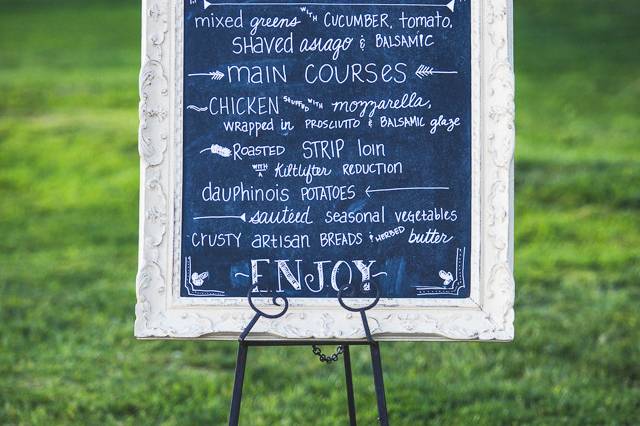 mixed greens with CUCUMBER, tomato,
shaved asiago & BALSAMIC
main COURSES
CHICKEN stuffed with mozzarella,
wrapped in PROSCIUTTO & BALSAMIC glaze
ROASTED STRIP loin
WITH A Kiltlifter REDUCTION
dauphinois POTATOES
sautéed seasonal vegetables
CRUSTY artisan BREADS & HERBED butter
ENJOY